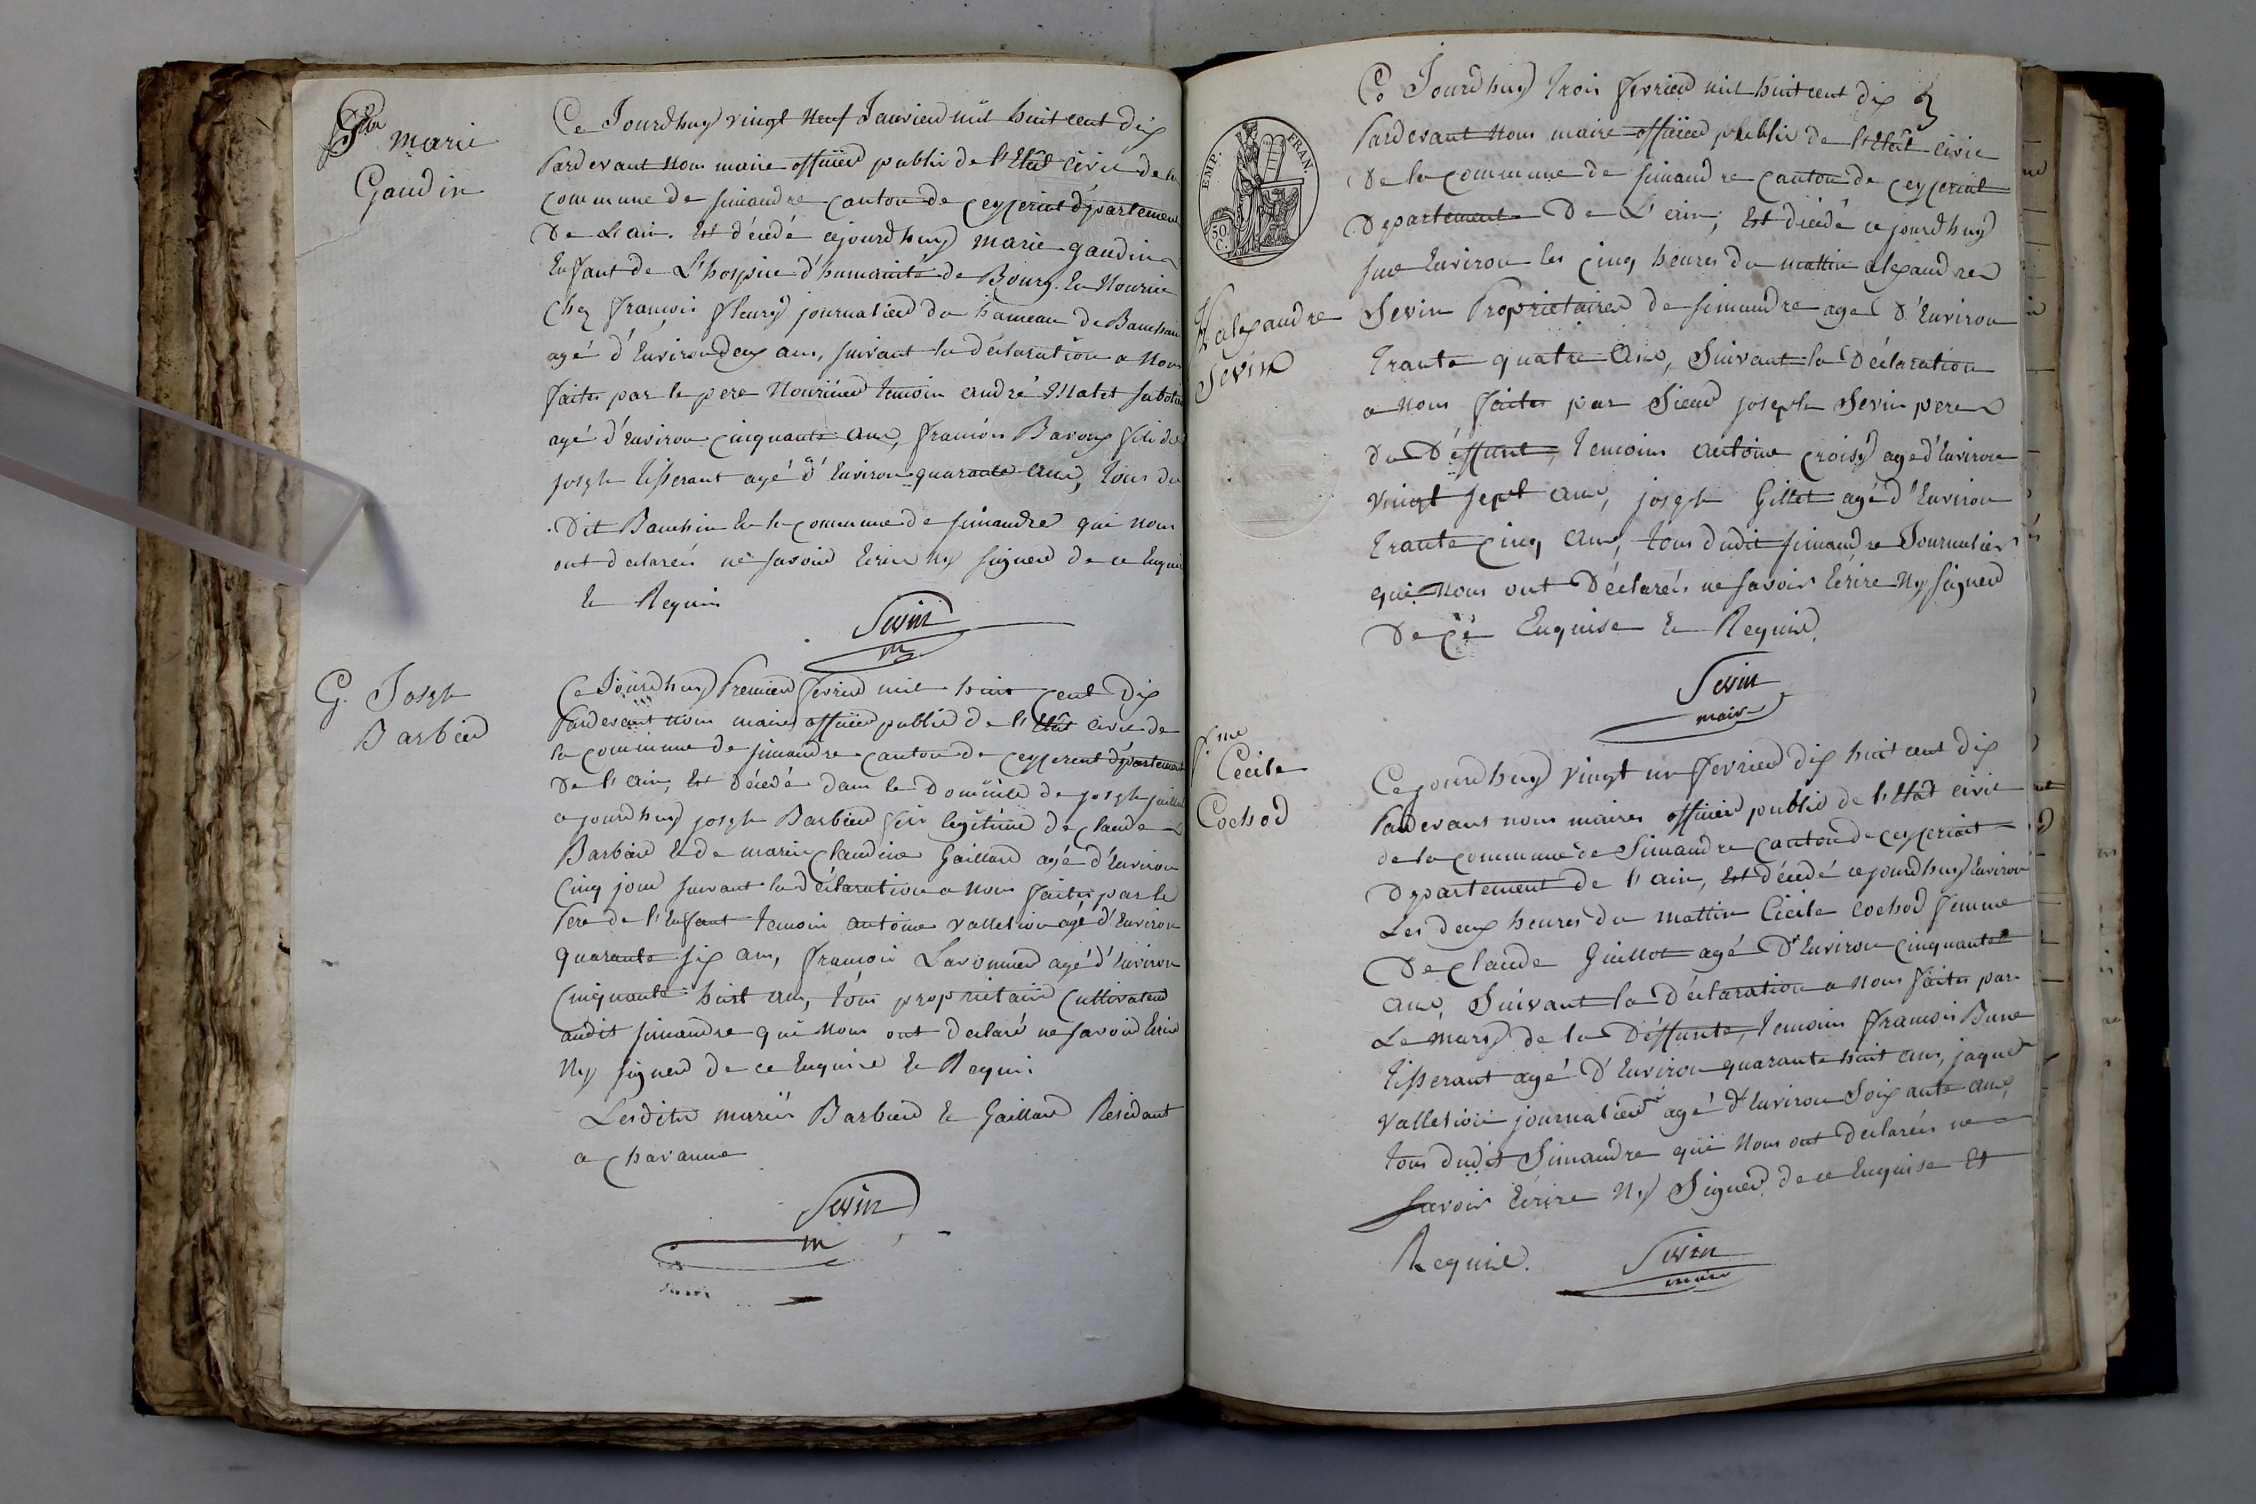 marie
Gaudin
Ce Jourdhuy vingt neuf Janvier mil huit cent dix
Pardevant nous maire officier public de l'Etat civil de la
commune de simandre canton de ceyzeriat département
De L'ain. Est décédé cejourdhuy marie gaudin
Enfant de L'hospice d'humanité de Bourg. En Nourice
chez françois fleury journalier du hameau de Banchin
agé d'Environ deux ans, suivant la déclaration a Nous
faites par le pere Nouricier temoin andré Malet
agé d'Environ cinquante ans, françois Baroux fils de
joseph tisserant agé d'Environ quarante ans, tous du
Dit Banchin En la commune de simandre qui nous
ont declarés ne savoir Ecrire Ny signer de ce Enquis
Et Requis
Sevin
m
G. Joseph
Barbier
Ce Jourdhuy Premier fevrier mil huit Cent Dix
Pardevant nous maire officier public de l'Etat civil de
la commune de simandre canton de ceyzeriat département
De l'ain, Est décédé dans le Domicile de joseph
cejourdhuy joseph Barbier fils legitime de claude
Barbier Et de marie claudine Gaillard agé d'Environ
Cinq jour suivant la déclaration a nous faites par le
Pere de l'Enfant temoin antoine valletion agé d'Environ
quarante six ans, françois Lavonnier agé d'Environ
Cinquante huit ans, tous proprietaire Cultivateur
audit simandre qui Nous ont declaré ne savoir Ecrire
Ny signer de ce Enquise Et Requis
Lesdits mariés Barbier Et Gaillard Residant
a chavanne
Sevin
m
EMP. FRAN.
50 C.
alexandre
Sevin
Ce Jourdhuy trois fevrier mil huit cent dix
Pardevant nous maire officier public de l'Etat civil
De la commune de simandre canton de ceyzeriat
Département De L'ain, Est décédé cejourdhuy
sur Environ les cinq heures du mattin alexandre
Sevin Proprietaire de simandre age D'Environ
trante quatre ans, Suivant la Déclaration
a nous faites par Sieur joseph Sevin pere
du Déffunt, temoins antoine croisy age d'Environ
vingt sept ans, joseph Gillet agé d'Environ
trante cinq ans, tous dudit simandre Journaliers
qui Nous ont Déclarés ne savoir Ecrire Ny signer
De ce Enquise Et Requise.
Sevin
maire
fme
Cecile
Cochod
Cejourdhuy vingt un fevrier dix huit cent dix
Pardevant nous maires officier public de l'Etat civil
de la commune de Simandre canton de ceyzeriat
Département de l'ain, Est décédé cejourdhuy Environ
Les deux heures du mattin Cicile cochod femme
De claude Guillot agé D'Environ cinquante
ans, Suivant la Déclaration a Nous faites par
Le mary de la Déffunte, temoins françois Bune
tisserant agé D'Environ quarante huit ans, jaque
valletion journalier agé d'Environ Soixante ans,
tous dudit Simandre qui Nous ont declarés ne
savoir Ecrire Ny Signer de ce Enquise Et
Requise.
Sevin
maire